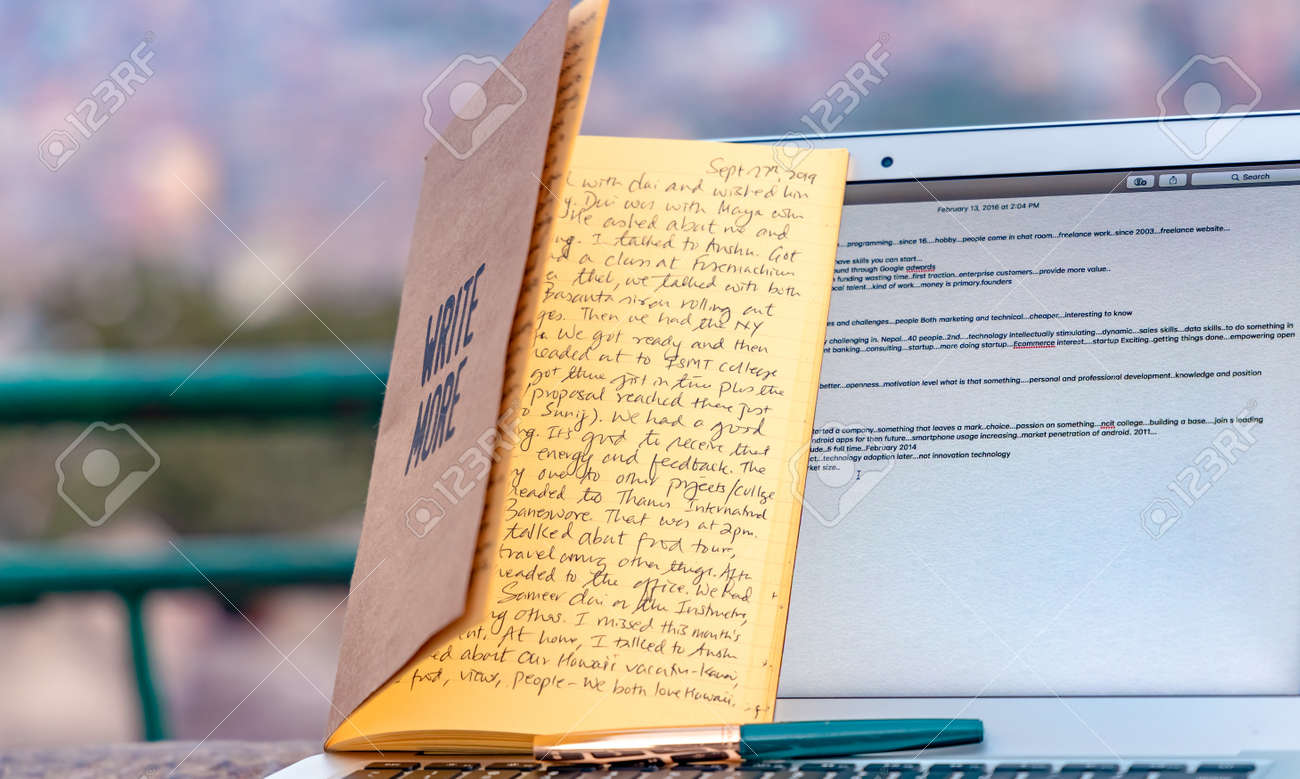 WRITE
MORE
Sept 27th, 2019
with dai and wished him
Dai was with Maya when
He asked about me and
I talked to Anshu. Got
a class at Fusemachines
that, we talked with both
Basanta sir on rolling out
Then we had the NY
We got ready and then
headed out to ISMT college
got there just in time plus the
proposal reached there just
Sunij). We had a good
It's good to receive that
energy and feedback. The
one to other projects/college
headed to Thames International
Baneswore. That was at 2pm.
talked about food tour,
travel among other things. After
headed to the office. We had
Sameer dai on the Instructor,
others. I missed this month's
At home, I talked to Anshu
about our Hawaii vacation - Kauai,
food, views, people - We both love Hawaii.
Search
February 13, 2016 at 2:04 PM
programming...since 16....hobby...people came in chat room...freelance work..since 2003...freelance website...
have skills you can start...
und through Google adwords
funding wasting time..first traction..enterprise customers...provide more value..
ocal talent...kind of work...money is primary.founders
es and challenges...people Both marketing and technical...cheaper...interesting to know
challenging in. Nepal...40 people..2nd....technology intellectually stimulating...dynamic...sales skills...data skills..to do something in
nt banking...consulting...startup...more doing startup...Ecommerce interest....startup Exciting..getting things done...empowering open
better...openness..motivation level what is that something....personal and professional development..knowledge and position
started a company..something that leaves a mark..choice...passion on something...ncit college...building a base....join s leading
ndroid apps for then future...smartphone usage increasing..market penetration of android. 2011...
ude..5 full time..February 2014
ct...technology adoption later...not innovation technology
rket size..
123RF
123RF
123RF
123RF
123RF